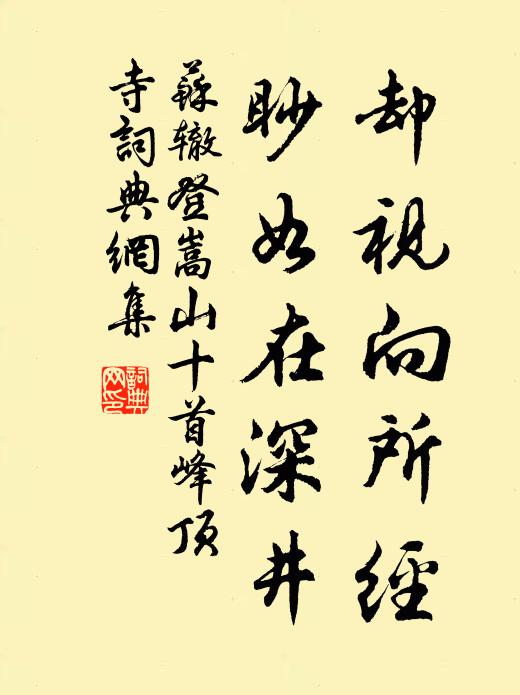 却視向所經
眇如在深井
蘇辙登嵩山十首峰顶
寺詞典網集
詞典
网印